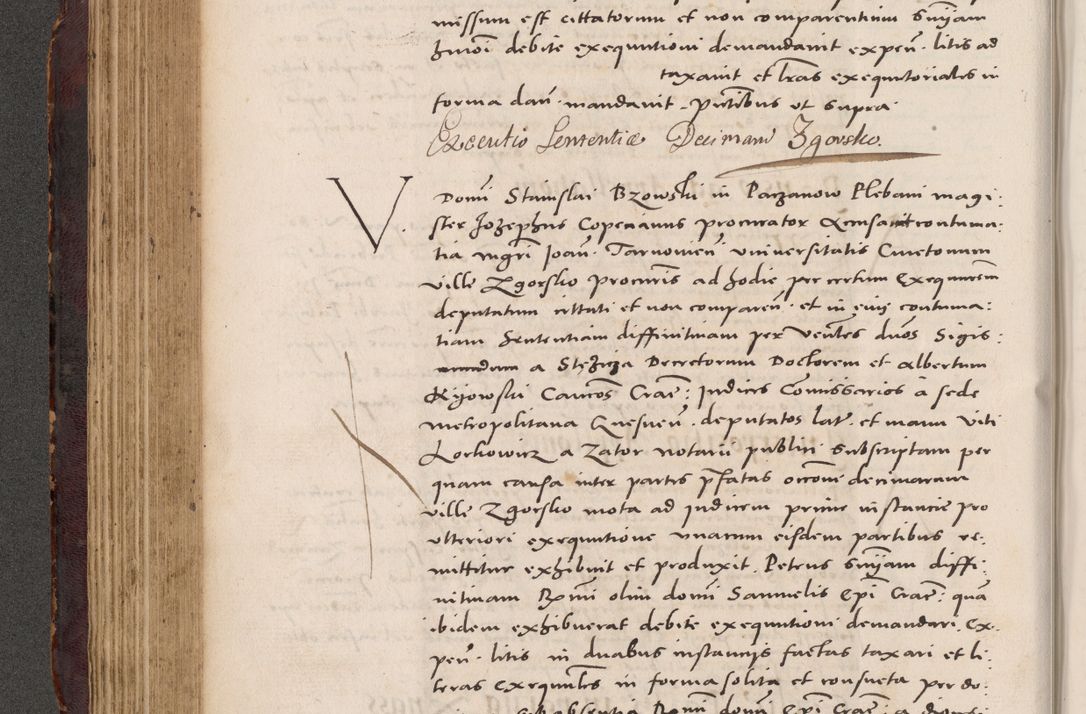 missum est cittatorum et non comparentium smĩam
hmõi debite exequutioni demandavit expeñ. litis ad
taxavit et lras exequutoriales in
forma dañ. mandavit. pñtibus ut supra.
Executio Sententiæ Decimarum Zgorsko.
V. Domĩ Stanislai Bzowski in Paczanow Plebani magi:
ster Jozephus Copecianus procurator accusavit contuma:
tia mgri Joañ. Tarnovieñ universitatis Cmetonum
ville Zgorsko procuris ad hodie per certum Exequutorem
deputatum cittati et non compareñ. et in eius contuma:
tiam sententiam diffinitivam per Ventles duos Sigis:
mundum a Stezicza Decretorum Doctorem et Albertum
Kyiowski Canicos Crac: Judices Comissarios a sede
metropolitana Gnesneñ. deputatos lat. et manu Viti
Lorkowicz a Zator notarii publici subscriptam per
quam causa inter partes pfatas occoni decimarum
ville Zgorsko mota ad judicem prime instancie pro
ulteriori exequutione unacum eisdem partibus re:
mittitur exhibuit et produxit. Petens smĩam diffi:
nitivam Rmi olim domi Samuelis Epi Crac: quã
ibidem exhibuerat debite exequutioni demandari. Ex:
peñ. litis in duabus instanciis factas taxari et li:
teras exequutles in forma solita et consueta per do:
absentia Rmi domi Epi Crac: